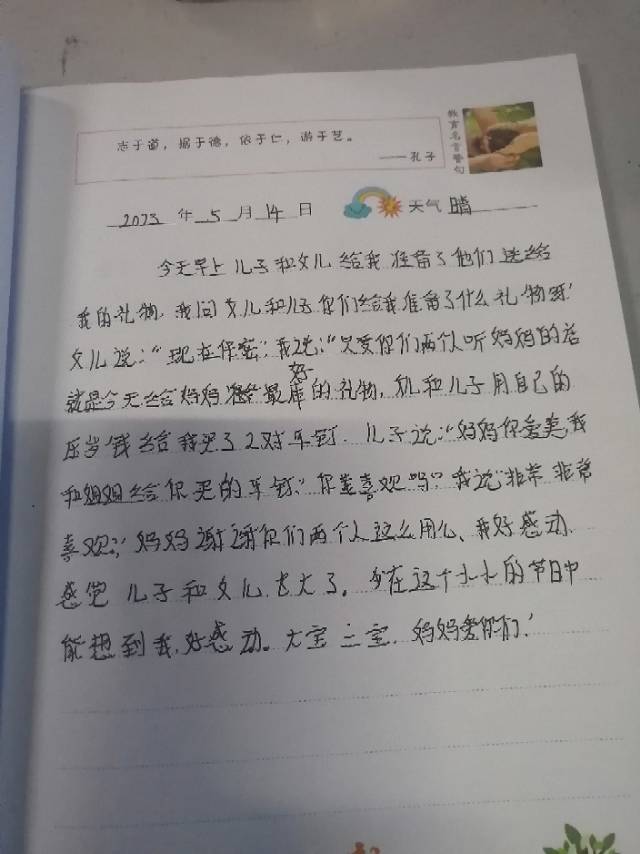 志于道，据于德，依于仁，游于艺。
——孔子
教育名言警句
2023 年 5 月 14 日 天气 晴
今天早上 儿子和女儿 给我 准备了他们送给
我的礼物，我问女儿和儿子你们给我准备了什么礼物呀！
女儿说：“现在保密”，我说：“只要你们两个人听妈妈的话
就是今天给妈妈最好的礼物，和儿子用自己的
压岁钱给我买了2对耳钉．儿子说：“妈妈你爱美，我
和姐姐给你买的耳钉．”你喜欢吗？”我说“非常 非常
喜欢，”妈妈谢谢你们两个人这么用心、我好感动．
感觉 儿子和女儿 长大了。在这个小小的节日中
能想到我，好感动。大宝 二宝．妈妈爱你们！